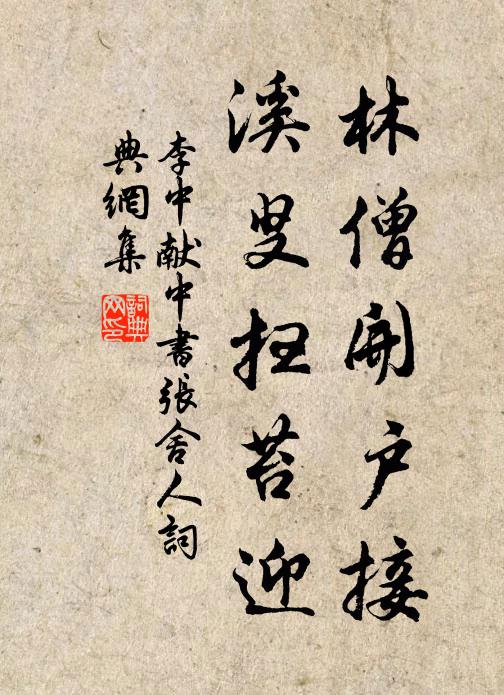 林僧開户接
溪叟扫苔迎
李中献中書張舍人詞
典網集
詞典网印